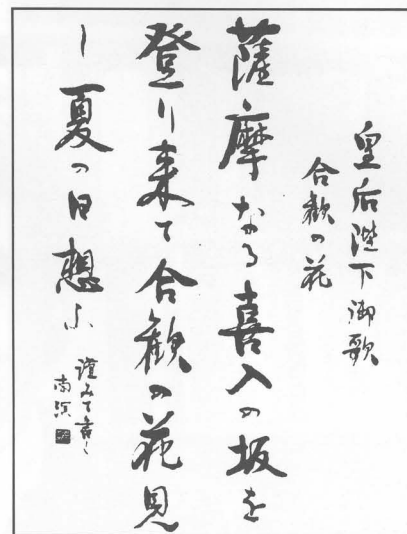 皇后陛下御歌
合歓の花
薩摩なる喜入の坂を
登り来て合歓の花見
し夏の日想ふ
謹みて書く